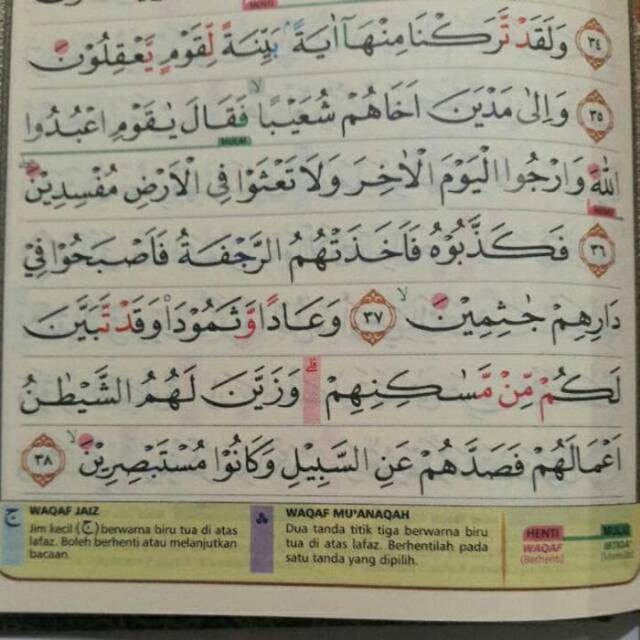 وَلَقَدْ تَّرَكْنَا مِنْهَآ اٰيَةً ۢ بَيِّنَةً لِّقَوْمٍ يَّعْقِلُوْنَ ٣٤
وَاِلٰى مَدْيَنَ اَخَاهُمْ شُعَيْبًاۙ فَقَالَ يٰقَوْمِ اعْبُدُوا ٣٥
اللّٰهَ وَارْجُوا الْيَوْمَ الْاٰخِرَ وَلَا تَعْثَوْا فِى الْاَرْضِ مُفْسِدِيْنَ
٣٦ فَكَذَّبُوْهُ فَاَخَذَتْهُمُ الرَّجْفَةُ فَاَصْبَحُوْا فِيْ
دَارِهِمْ جٰثِمِيْنَۙ ٣٧ وَعَادًا وَّثَمُوْدَا۟ وَقَدْ تَّبَيَّنَ
لَكُمْ مِّنْ مَّسٰكِنِهِمْۗ وَزَيَّنَ لَهُمُ الشَّيْطٰنُ
اَعْمَالَهُمْ فَصَدَّهُمْ عَنِ السَّبِيْلِ وَكَانُوْا مُسْتَبْصِرِيْنَۙ ٣٨
ج WAQAF JAIZ
Jim kecil (ج) berwarna biru tua di atas
lafaz. Boleh berhenti atau melanjutkan
bacaan.
WAQAF MU'ANAQAH
Dua tanda titik tiga berwarna biru
tua di atas lafaz. Berhentilah pada
satu tanda yang dipilih.
HENTI MULAI
WAQAF
(Berhenti)